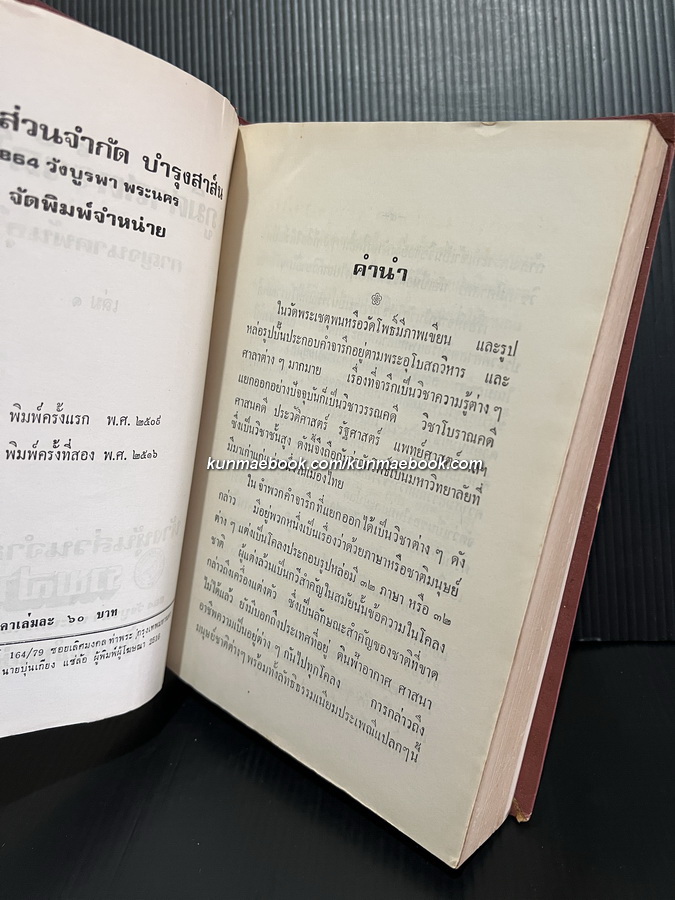 ส่วนจำกัด บำรุงสาส์น
864 วังบูรพา พระนคร
จัดพิมพ์จำหน่าย
พิมพ์ครั้งแรก พ.ศ. ๒๕๐๙
พิมพ์ครั้งที่สอง พ.ศ. ๒๕๑๖
คาเล่มละ ๖๐ บาท
164/79 ซอยเลิศมงคล ท่าพระ
นายบุ่นเกียง แซ่ล้อ ผู้พิมพ์ผู้โฆษณา 2516
คำนำ
ในวัดพระเชตุพนหรือวัดโพธิ์มีภาพเขียน และรูป
หล่อรูปปั้นประกอบคำจารึกอยู่ตามพระอุโบสถวิหาร และ
ศาลาต่าง ๆ มากมาย เรื่องที่จารึกเป็นวิชาความรู้ต่าง ๆ
แยกออกอย่างปัจจุบันก็เป็นวิชาวรรณคดี วิชาโบราณคดี
ศาสนคดี ประวัติศาสตร์ รัฐศาสตร์ แพทย์ศาสตร์
ซึ่งเป็นวิชาชั้นสูง ดังนี้จึงถือ เป็นมหาวิทยาลัยที่
kunmaebook.com/kunmaebook.com
มีมาเก่าแก่ เมืองไทย
ในจำพวกคำจารึกที่แยกออกได้เป็นวิชาต่าง ๆ ดัง
กล่าว มีอยู่พวกหนึ่งเป็นเรื่องว่าด้วยภาษาหรือชาติมนุษย์
ต่าง ๆ แต่งเป็นโคลงประกอบรูปหล่อมี ๓๒ ภาษา หรือ ๓๒
ชาติ ผู้แต่งล้วนเป็นกวีสำคัญในสมัยนั้นข้อความในโคลง
กล่าวถึงเครื่องแต่งตัว ซึ่งเป็นลักษณะสำคัญของชาติที่ขาด
ไม่ได้แล้ว ยังมีบอกถึงประเทศที่อยู่ ดินฟ้าอากาศ ศาสนา
อาชีพความเป็นอยู่ต่าง ๆ กันไปทุกโคลง การกล่าวถึง
มนุษย์ชาติต่างๆ พร้อมทั้งลัทธิธรรมเนียมประเพณีแปลกๆนี้